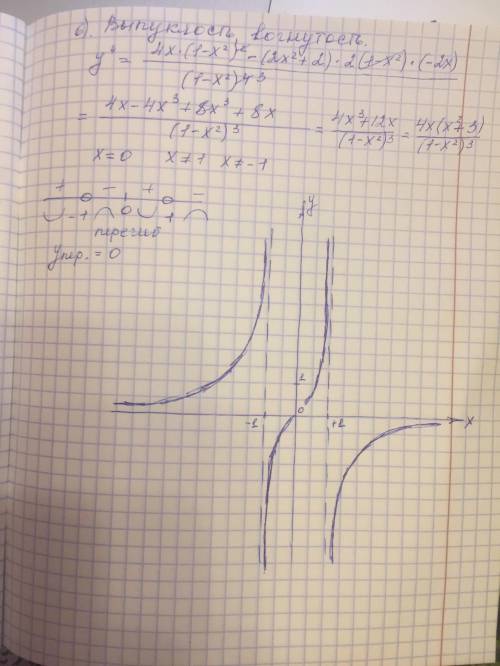 6). Выпуклость, вогнутость.
y" = 4x·(1-x²)² - (2x²+2)·2(1-x²)·(-2x) / (1-x²)⁴ ³
= 4x-4x³+8x³+8x / (1-x²)³ = 4x³+12x / (1-x²)³ = 4x(x²+3) / (1-x²)³
x=0 x≠1 x≠-1
+ - + -
-1 0 1
перегиб
yпер. = 0
y
1
0
-1 +1 x